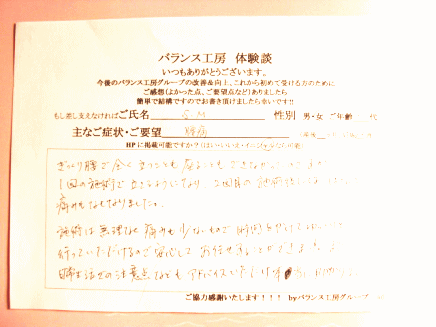 バランス工房 体験談
いつもありがとうございます。
今後のバランス工房グループの改善&向上、これから初めて受ける方のために
ご感想(よかった点、ご要望点など)ありましたら
簡単で結構ですのでお書き頂けましたら幸いです!!
もし差し支えなければご氏名 S.M 性別 男・女 ご年齢 代
主なご症状・ご要望 腰痛
HPに掲載可能ですか?(はい・いいえ・イニシャルなら可能)
ぎっくり腰で全く立つことも座ることもできなかった
1回の施術で立てるようになり 2回目の施術
痛みもなくなりました。
施術は無理なく痛みも少ないもので 時間をかけて
行っていただけるので安心して お任せすることができました
日常生活での注意点なども アドバイスいただけ
ご協力感謝いたします!!! byバランス工房グループ